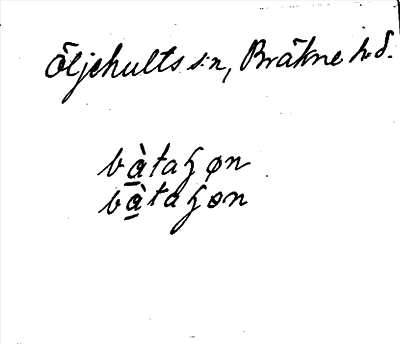 Öljehults s:n, Bräkne hd.
bà̱taɧøn
bà̱taɧon